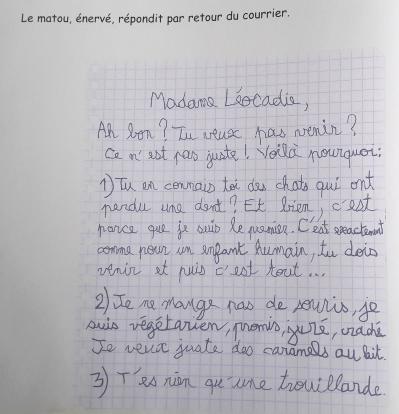 Le matou, énervé, répondit par retour du courrier.
Madame Léocadie,
Ah bon ? Tu veux pas venir ?
Ce n'est pas juste ! Voilà pourquoi :
1) Tu en connais toi des chats qui ont
perdu une dent ? Et bien, c'est
parce que je suis le premier. C'est exactement
comme pour un enfant humain, tu dois
venir et puis c'est tout ...
2) Je ne mange pas de souris, je
suis végétarien, promis, juré, craché
Je veux juste des caramels au lait.
3) T'es rien qu'une trouillarde.